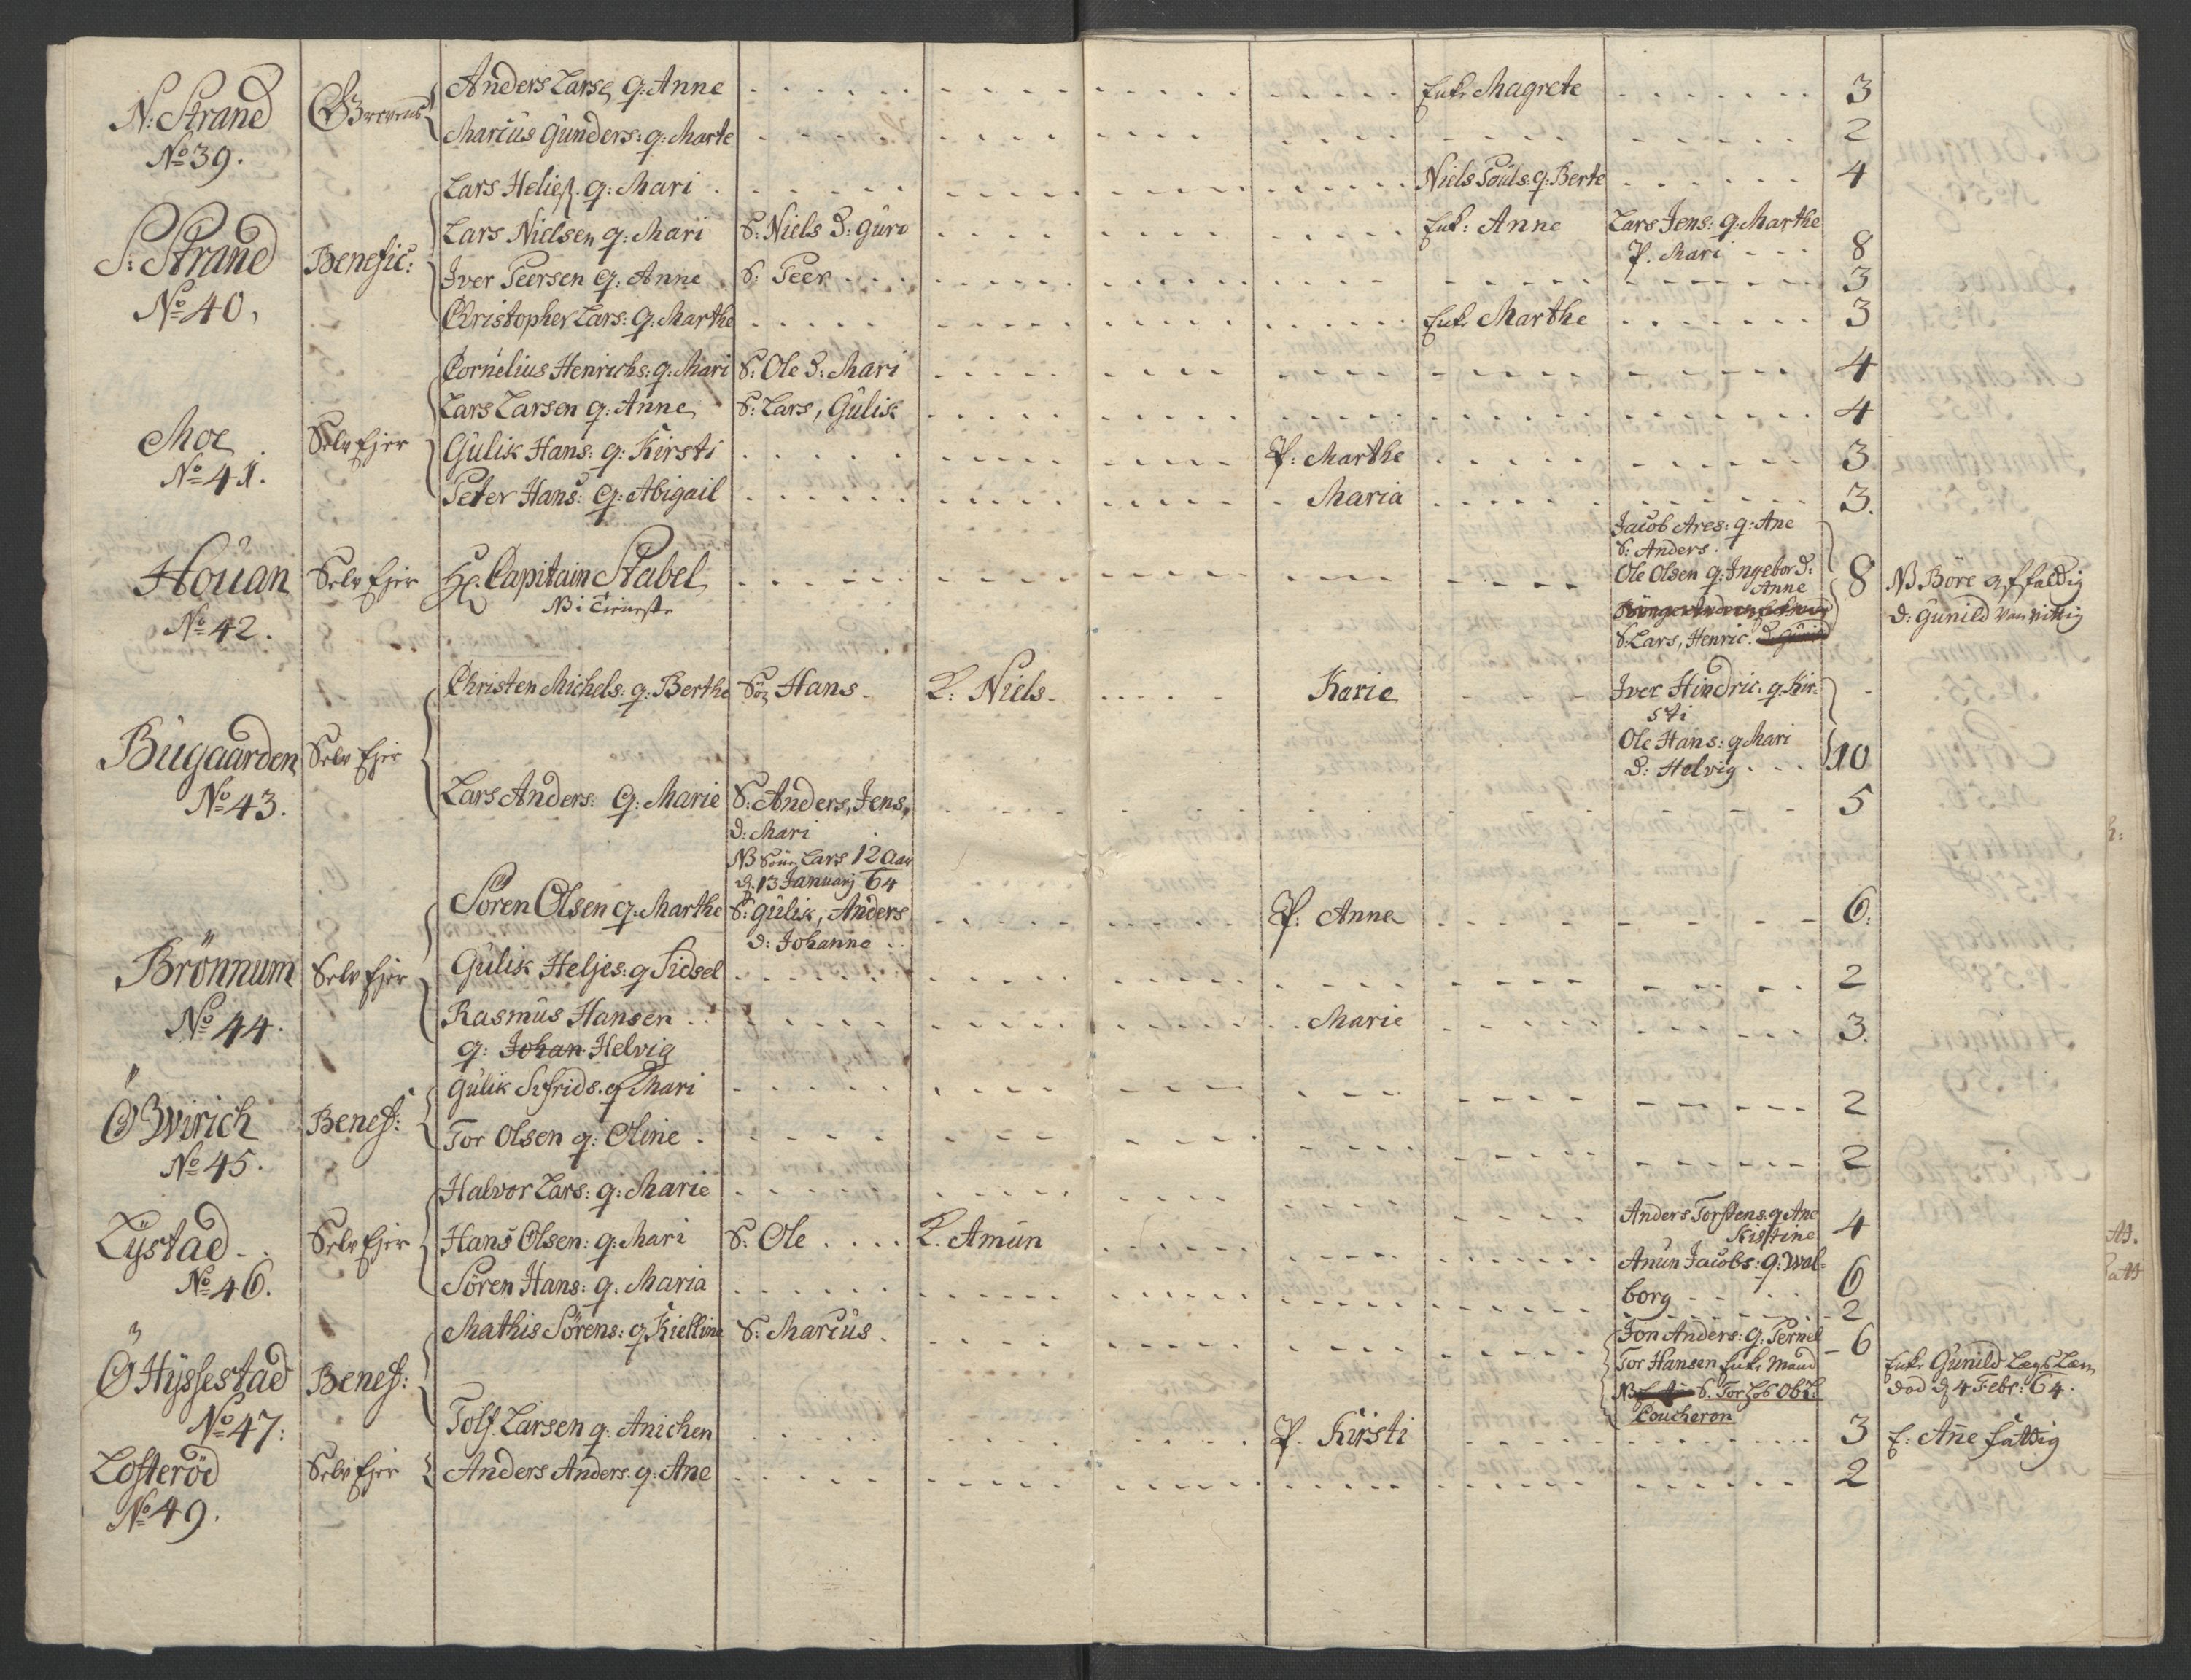 N: Strand
No 39.
Grevens
Anders Larse, g: Anne
Enke Magrete
3
Marcus Gunders: g: Marte
2
S: Strand
No 40.
Benefic:
Lars Heließ. g: Mari
Niels Pouls: g: Berte
4
Lars Nielsen g: Mari
S: Niels D: Guro
Enk: Anne
Lars Jens: g: Marthe
P. Mari
8
Iver Peersen g: Anne
S: Peer
3
Christopher Lars: g: Marthe
Enke Marthe
3
Moe
No 41.
Selv Ejer
Cornelius Henrichs: g: Mari
S: Ole D: Mari
4
Lars Larsen g: Anne
S: Lars, Gulik
4
Gulik Hans: g: Kirsti
P: Marthe
3
Peter Hans: g: Abigail
Maria
3.
Houan
No 42.
Selv Ejer
Hr. Capitain Stabel
NB i Tieneste
Jacob Ares: g: Ane
S: Anders.
Ole Olsen g: Ingebor D:
Anne
S: Lars, Henric.
8
NB Böre affældig
D: Gunild Vanvittig
Bugaarden
No 43.
Selv Ejer
Christen Michels: g: Berthe
Søn Hans
L: Niels
Karie
Iver Hindric: g: Kir-
sti
Ole Hans: g Mari
D: Helvig
10
Lars Anders: g: Marie
S: Anders, Jens,
D: Mari
NB Søn Lars 12 Aar
d. 13 Januarj 64
5
Brönnum
No 44.
Selv Ejer
Sören Olsen g: Marthe
S: Gulik, Anders
D: Johanne
P: Anne
6:
Gulik Heljes: g Sidsel
2
Rasmus Hansen
g: Johan Helvig
Marie
3.
Ö Wirich
No 45.
Benef:
Gulik Sifrids. g Mari
2
Tor Olsen g: Oline
2
Lystad
No 46.
Selv Ejer
Halvor Lars: g: Marie
Anders Torstens: g Ane
Kistine
4
Hans Olsen: g: Mari
S: Ole
L. Amun
Amun Jacobs: g: Wal-
borg
6
Sören Hans: g. Maria
2
Ö Hyssestad
No 47:
Benef:
Mathis Sörens: g Kiestine
S: Marcus
Jon Anders: g: Pernel
Tor Hansen Enke Mand
NB S. Tor hos Ob L:
Coucheron
6
Enke Gunild Lægs Lem
död d 4 Febr: 64.
Tolf Larsen g: Anichen
P. Kirsti
3
E: Ane fattig
Lofteröd
No 49.
Selv Ejer
Anders Anders. g: Ane
2